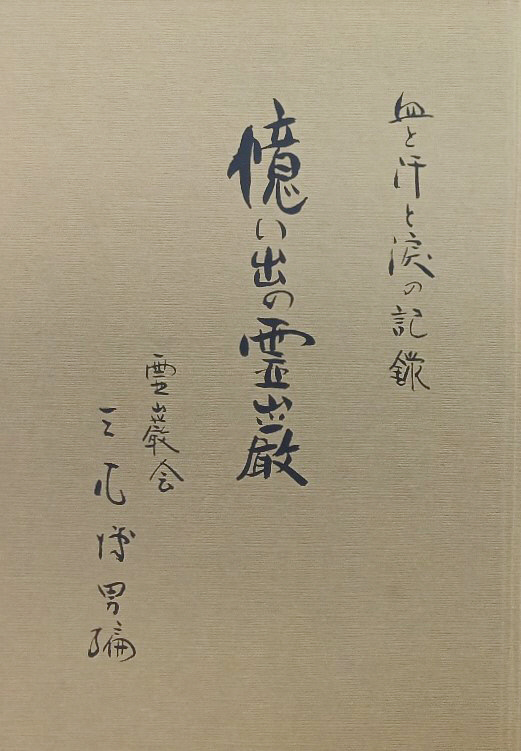 血と汗と涙の記録
憶い出の霊巌
霊巌会
三尾博男編